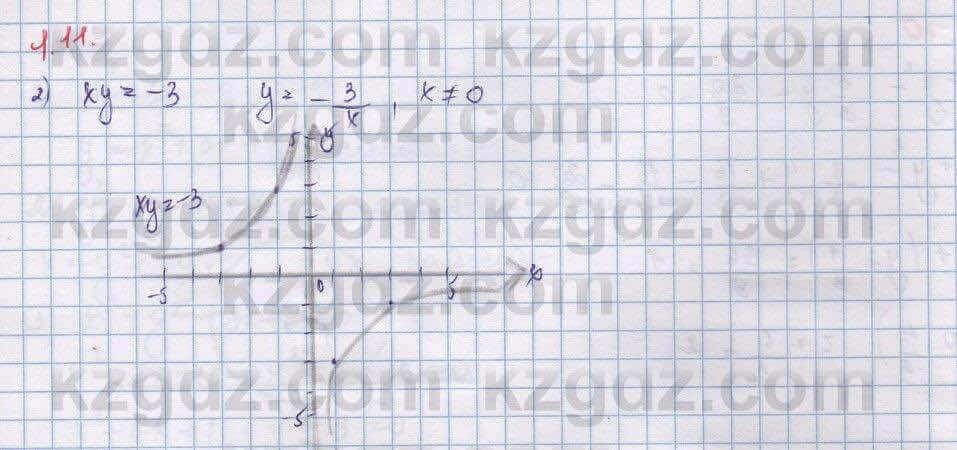 1.11.
kzgdz.com kzgdz.com
2) xy = -3 y = -3/x, x ≠ 0
kzgdz.com
5 y
xy = -3
kzgdz.com kzgdz.com
-5 0 5 x
kzgdz.com
kzgdz.com kzgdz.com
-5